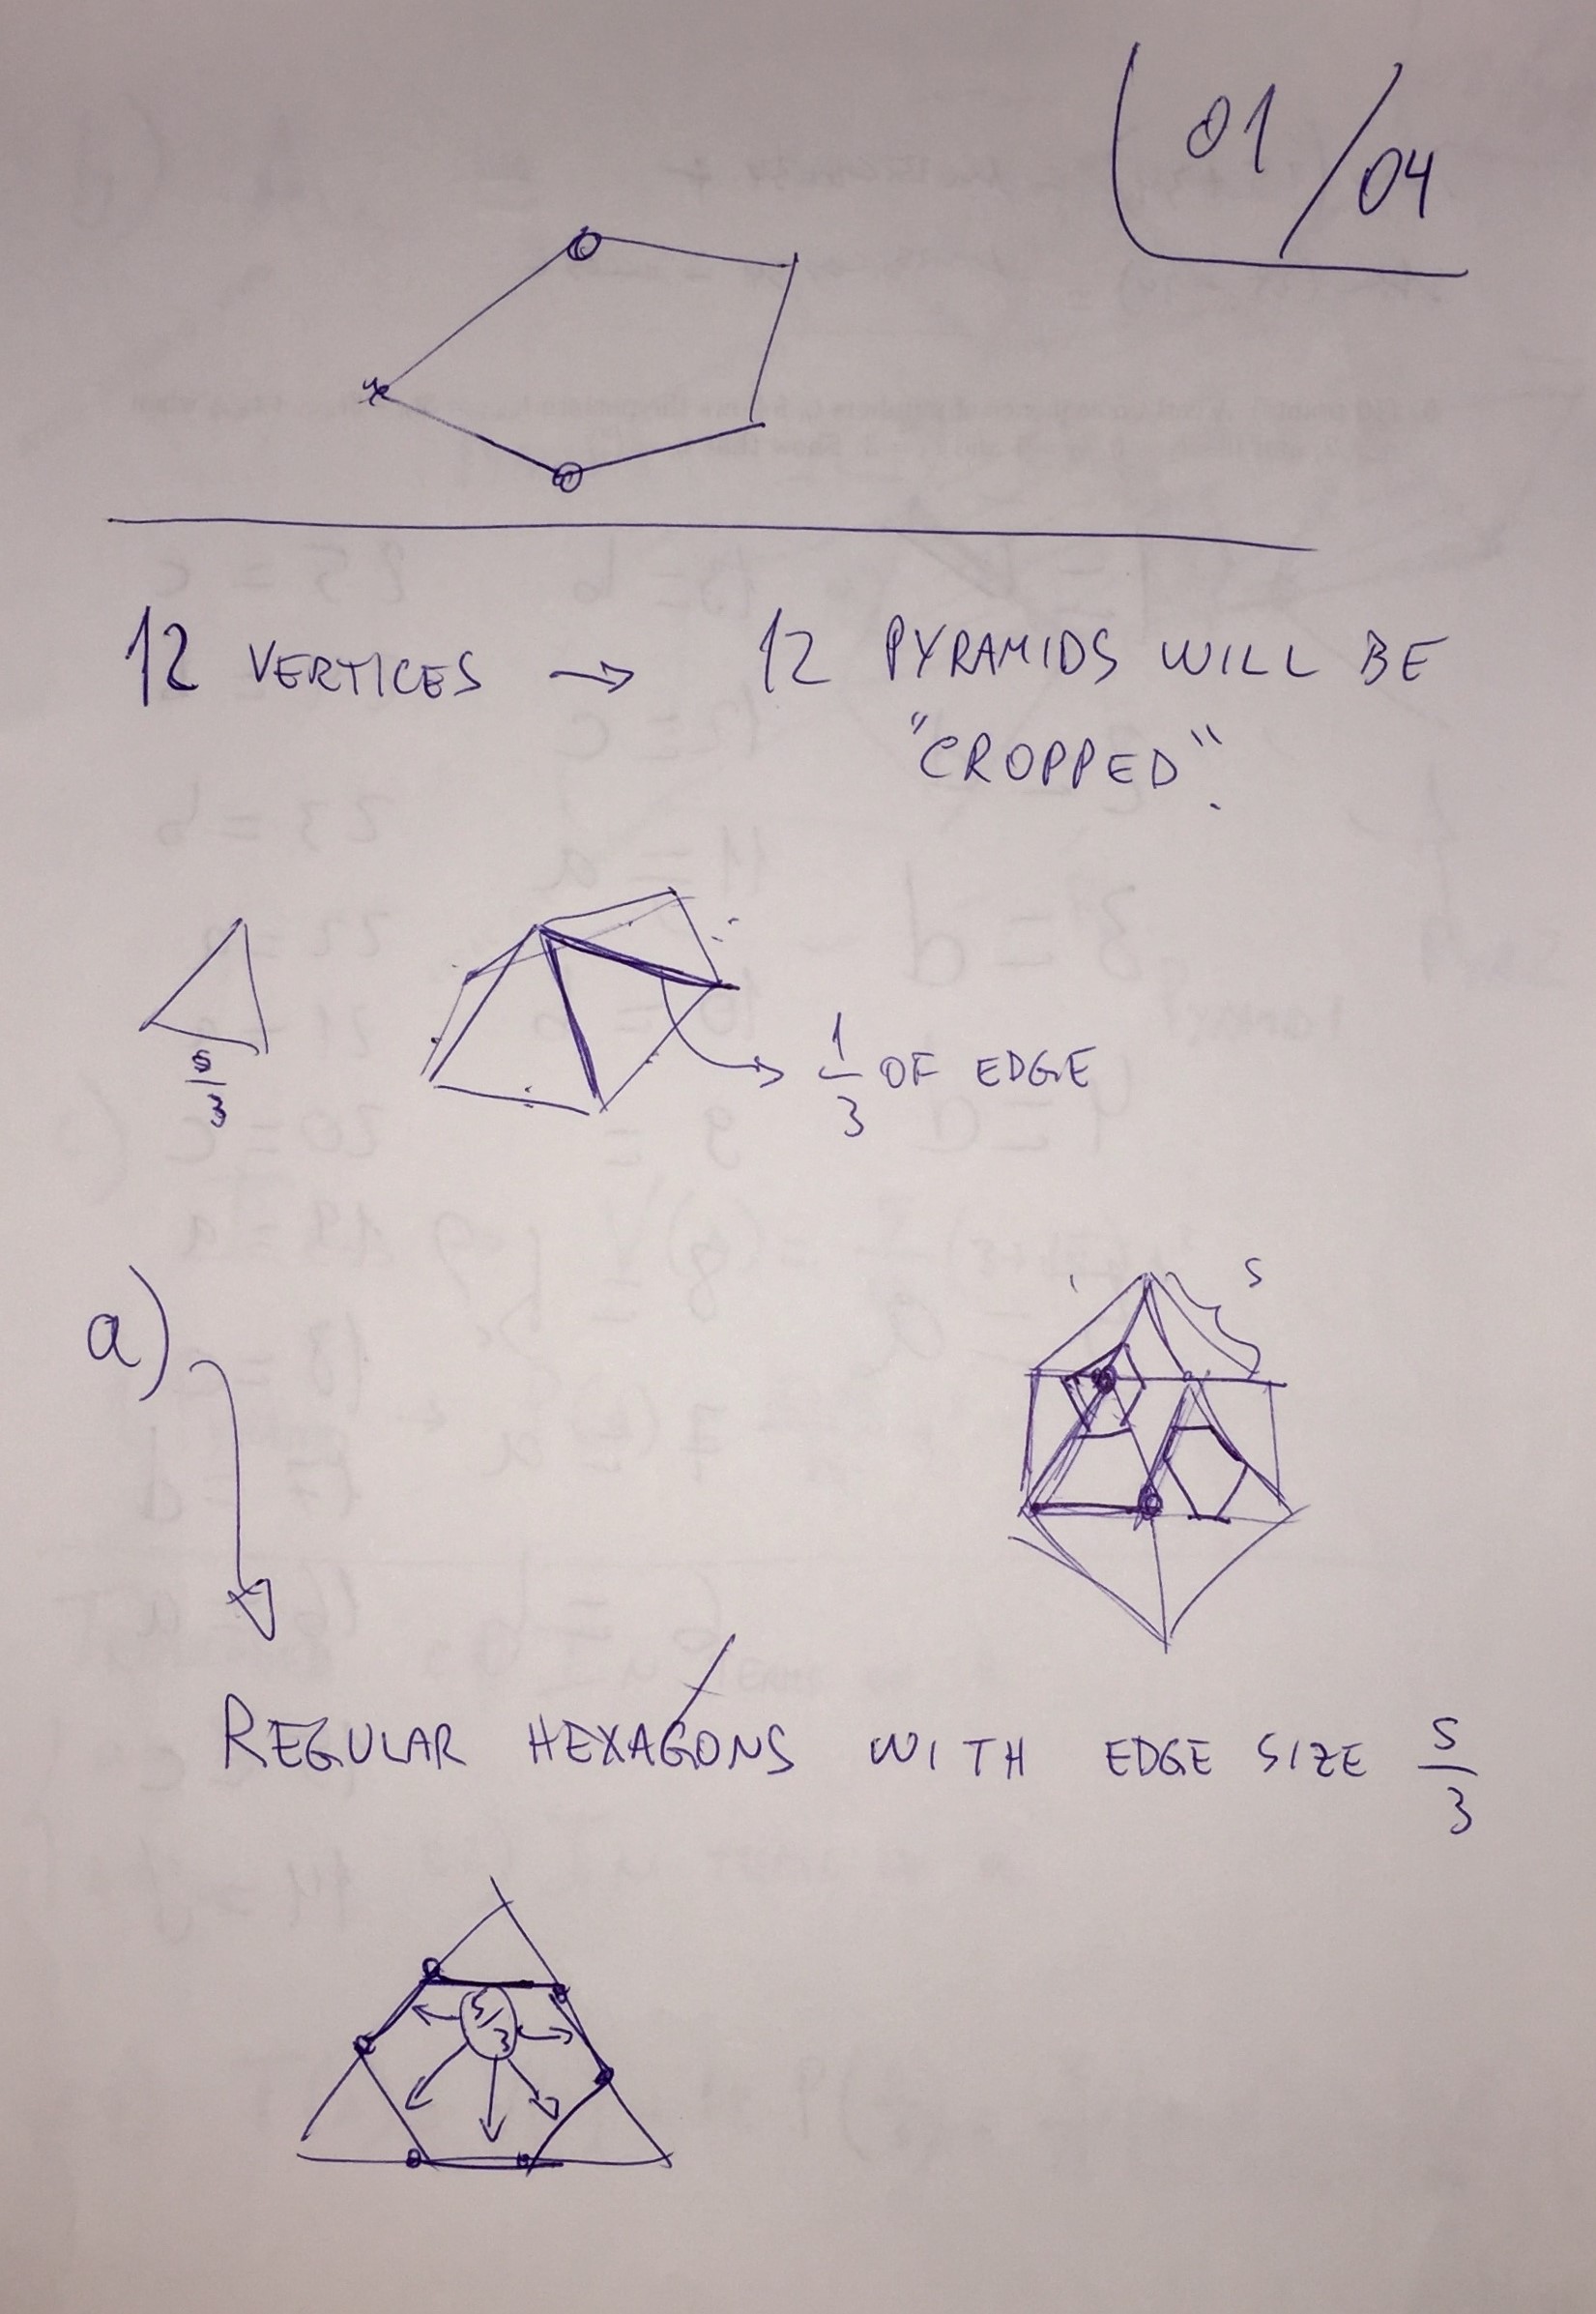 01/04
12 VERTICES → 12 PYRAMIDS WILL BE
"CROPPED".
s/3
1/3 OF EDGE
a)
s
REGULAR HEXAGONS WITH EDGE SIZE s/3
s/3